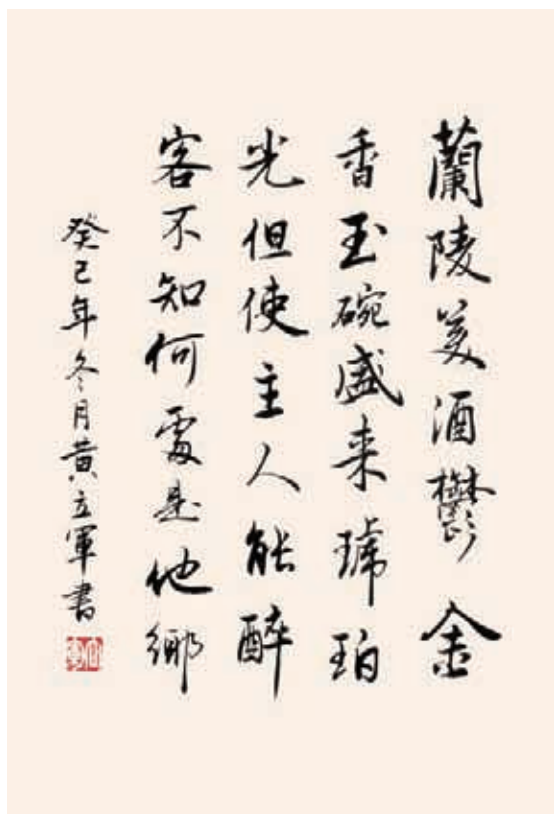 蘭陵美酒鬱金
香玉碗盛来琥珀
光但使主人能醉
客不知何處是他鄉
癸巳年冬月黄立軍書